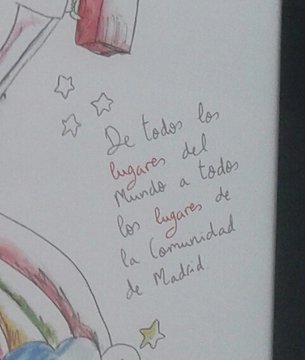 De todos los
lugares del
Mundo a todos
los lugares de
la Comunidad
de Madrid